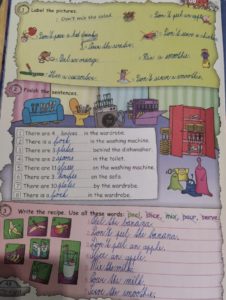 1 Label the pictures.
Don't mix the salad.
Don't peel an apple.
Don't pour a hot
Don't serve a
Slice the
Eat an orange.
Mix a smoothie.
Slice a cucumber.
Don't serve a smoothie.
2 Finish the sentences.
1 There are 4 knives in the wardrobe.
2 There is a fork in the washing machine.
3 There are 5 behind the dishwasher.
4 There are 2 spoons in the toilet.
5 There are 11 on the washing machine.
6 There are 3 knives on the sofa.
7 There are 10 by the wardrobe.
8 There is a fork in the wardrobe.
3 Write the recipe. Use all these words: peel, slice, mix, pour, serve.
Peel the banana.
Don't peel the banana.
Don't peel an apple.
Slice an apple.
Mix the milk.
Pour the milk.
the smoothie.